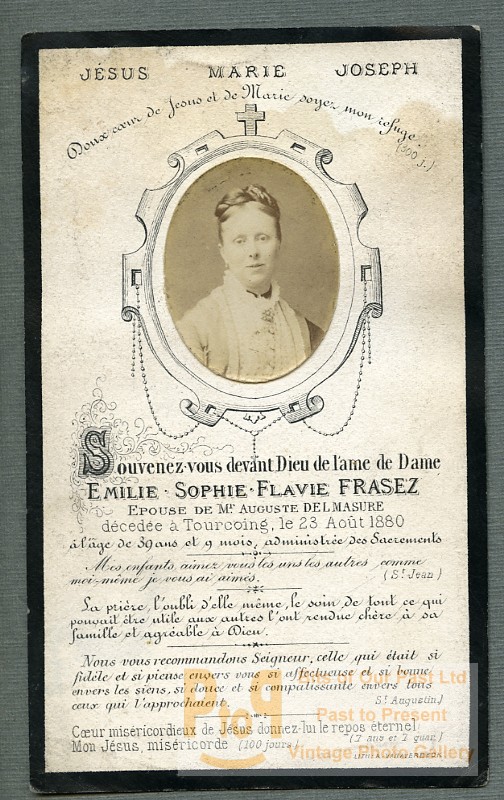 JÉSUS MARIE JOSEPH
Doux cœur de Jesus et de Marie soyez mon refuge.
(300 J.)
Souvenez-vous devant Dieu de l'ame de Dame
EMILIE - SOPHIE - FLAVIE FRASEZ
EPOUSE DE Mr AUGUSTE DELMASURE
décedée à Tourcoing, le 23 Août 1880
à l'âge de 39 ans et 9 mois, administrée des Sacrements
Mes enfants aimez vous les uns les autres comme
moi-même je vous ai aimés. (St Jean)
La prière, l'oubli d'elle même, le soin de tout ce qui
pouvait être utile aux autres l'ont rendue chère à sa
famille et agréable à Dieu.
Nous vous recommandons Seigneur, celle qui était si
fidèle et si pieuse envers vous si affectueuse et si bonne
envers les siens, si douce et si compatissante envers tous
ceux qui l'approchaient. St Augustin)
Cœur miséricordieux de Jésus donnez-lui le repos eternel
(7 ans et 7 quar.)
Mon Jésus, miséricorde (100 jours)
Out of Our Past Ltd
Past to Present
Vintage Photo Gallery